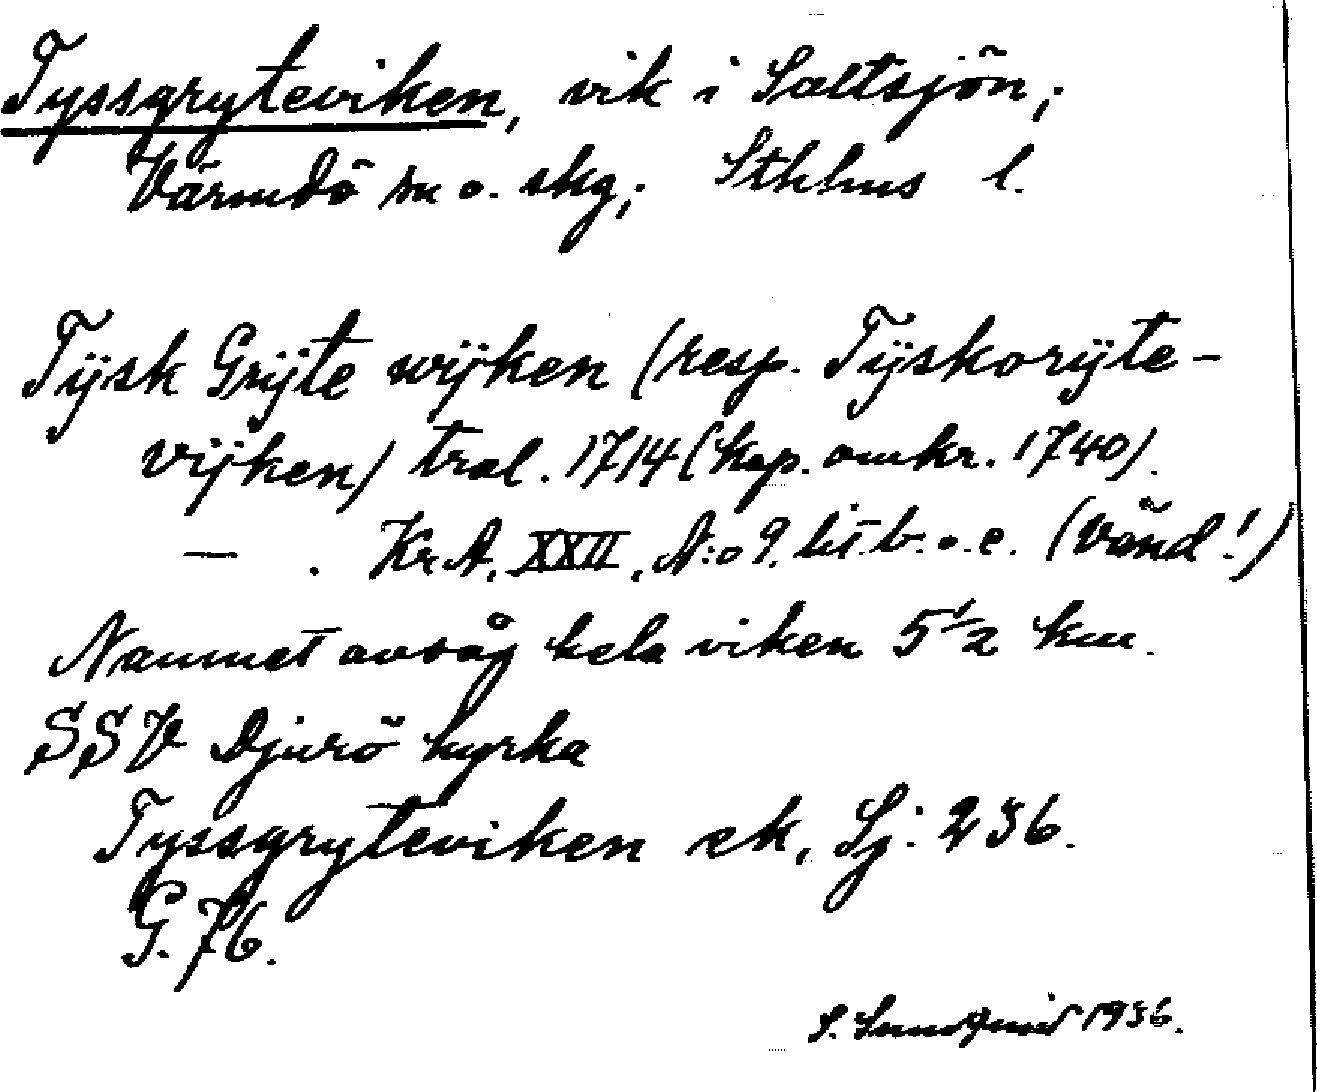 Tyssgryteviken, vik i Saltsjön;
Värmdö sn o. skg; Sthlms l.
Tÿsk Grÿte wÿken (resp. Tÿskorÿte-
vÿken) tral. 1714 (kop. omkr. 1740).
— . Kr.A. XXII, N:o 9. lit. b. o. e. (Vänd!)
Namnet avsåg hela viken 5 1/2 km.
SSV Djurö kyrka
Tyssgryteviken ek, Sj: 236.
G. 76.
S. Sundqvist 1936.